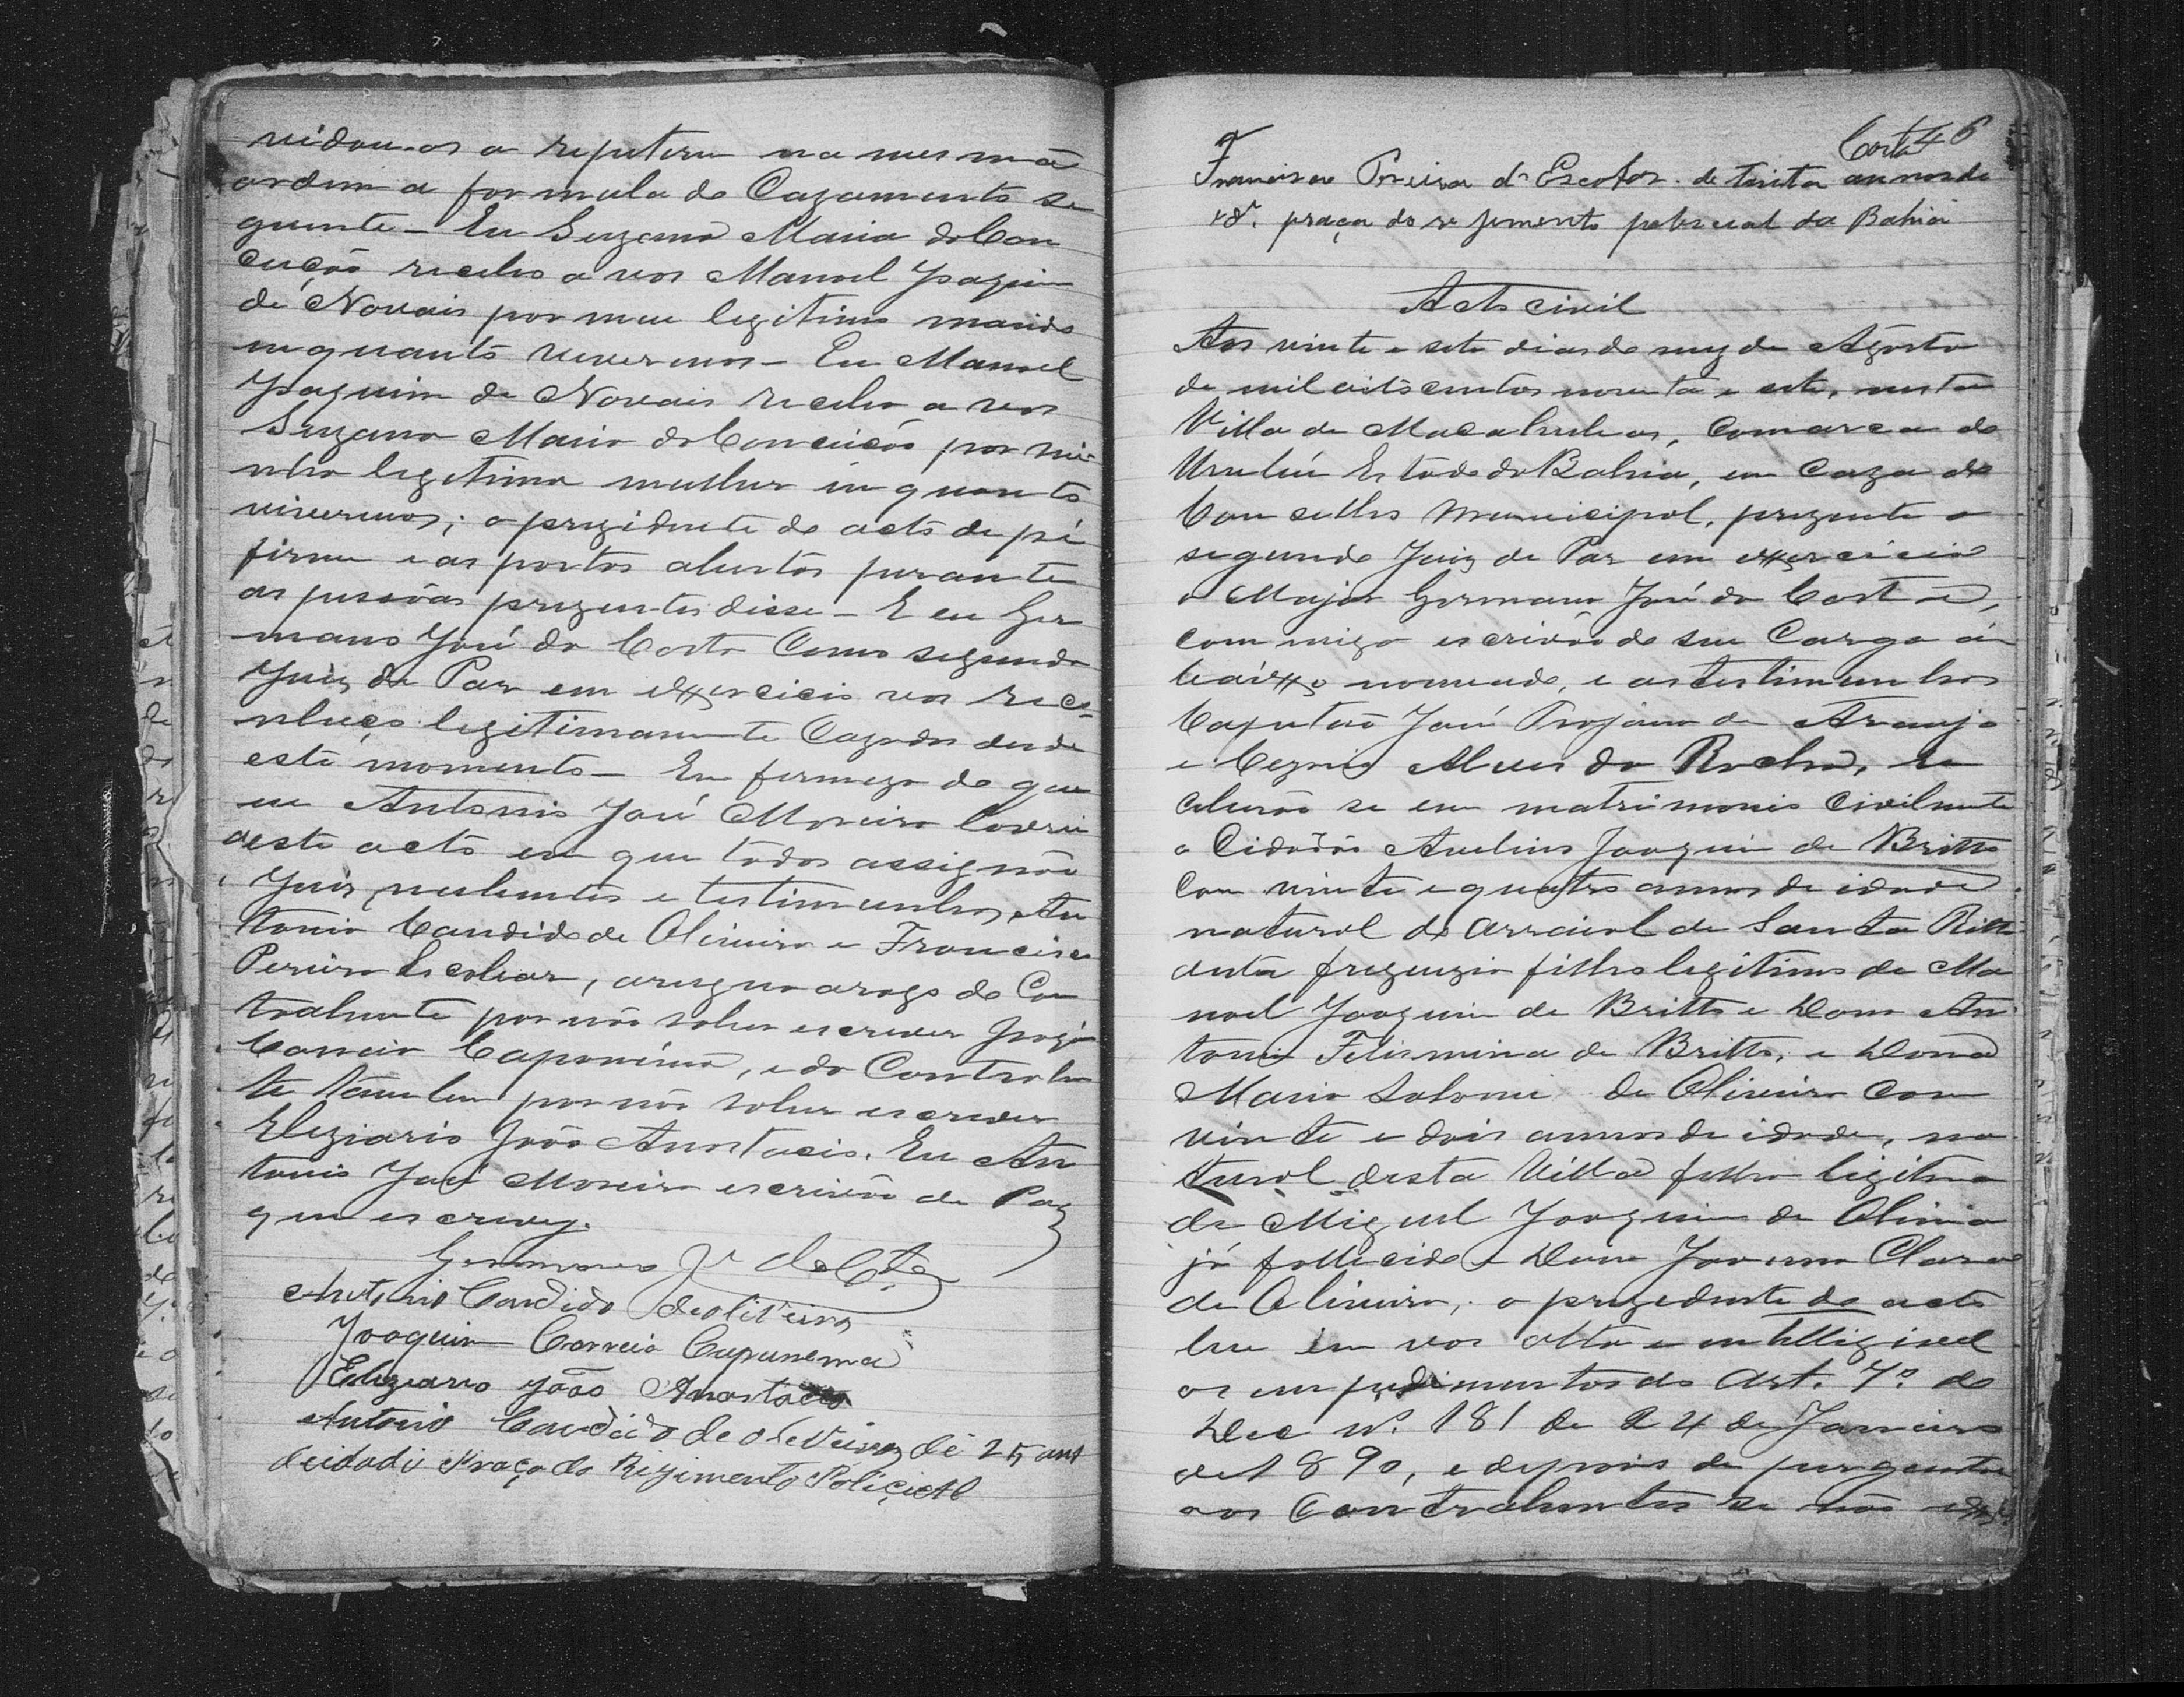 vidou-os a repeterem na mesma
ordem a formula do Cazamento se
guinte - Eu Suzana Maria da Con
ceição recebo a vos Manoel Joaquim
de Novais por meu legitimo marido
inquanto vivermos - Eu Manoel
Joaquim de Novais recebo a vos
Suzana Maria da Conceicão por mi
nha legitima mulher inquanto
vivermos; o prezidente do acto de pé
firme e as portas abertas perante
as pessôas prezentes disse - E eu Ger
mano José da Costa Como segundo
Juiz de Paz em exercicio vos reco-
nheço legitimamente Cazados desde
este momento - Em firmeza do que
eu Antonio José Moreira lavrei
este acto em que todos assignão
Juiz, nubentes e testimunhas, An
tonio Candido de Oliveira e Francisco
Pereira Escobar, a rogo da Con
trahente por não saber escrever Joaqm
Correia Capanema, e do Contrahen
te tambem por não saber escrever
Eleziario João Anastacio. Eu An
tonio José Moreira escrivão de Paz
que escrevy.
Germano Je da Cta
Antonio Candido deoliveira
Joaquim Correia Cupunema
Eleziario João Anastacio
Antonio Candido de oliveira de 25 ans
deidade Praça do Regimento Policial
Costa 46
Francisco Pereira de Escobar de trinta annos de
id. praça do regemento policial da Bahia
Acto civil
Aos vinte e sete dias do mez de Agosto
de mil oito centos noventa e sete, nesta
Villa de Macahubas, Comarca do
Urubú Estado da Bahia, em Caza do
Conselho Municipal, prezente o
segundo Juiz de Paz em exercicio
o Major Germano José da Costa,
commigo escrivão de seu Cargo a
baixo nomeado, e as testimunhas
Capitão José Trajano de Araujo
e Cezario Alves da Rocha, re
ceberão se em matrimonio Civilmente
o Cidadão Avelino Joaquim de Britto
Com vinte e quatro annos de idade
natural do Arraial de Santa Ritta
desta freguezia filho legitimo de Ma
noel Joaquim de Britto e Dona An
tonia Felismina de Britto, e Dona
Maria Salomé de Oliveira Com
vinte e dois annos de idade, na
tural desta Villa filha legitima
de Miguel Joaquim de Oliveira
já fallecido e Dona Joanna Clara
de Oliveira, o prezedente do acto
leu em vos alta e inttelligivel
os impedimentos do Art. 7º do
Dec nº. 181 de 24 de Janeiro
de 1890, e depois de perguntar
aos Contrahentes se não